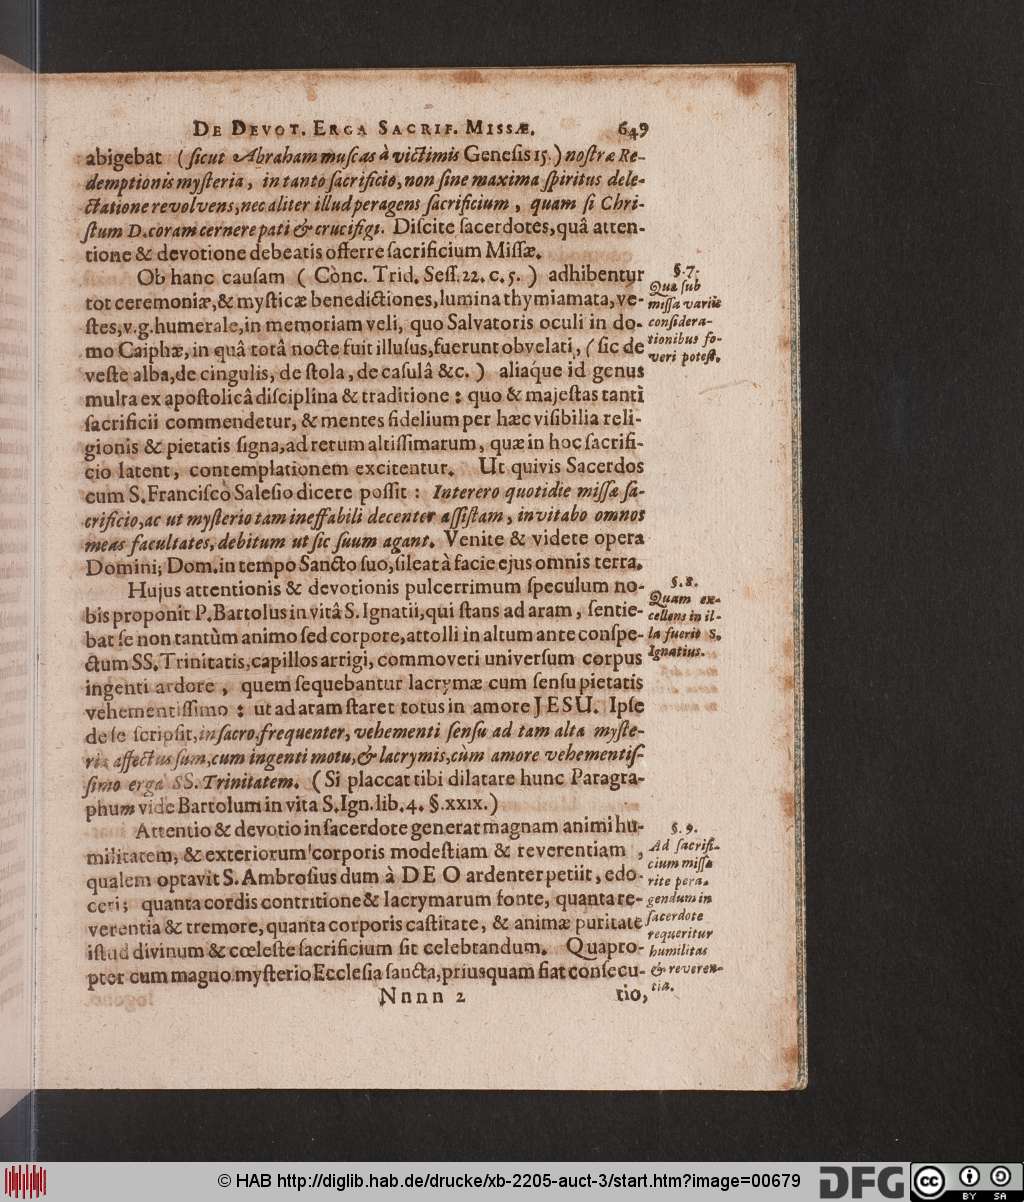 DE DEVOT. ERGA SACRIF. MISSÆ. 649
abigebat (ſicut Abraham muſcas à victimis Geneſis 15.) noſtræ Re-
demptionis myſteria, in tanto ſacrificio, non ſine maxima ſpiritus dele-
ctatione revolvens, nec aliter illud peragens ſacrificium, quam ſi Chri-
ſtum D. coram cernere pati & crucifigi. Diſcite ſacerdotes, quâ atten-
tione & devotione debeatis offerre ſacrificium Miſſæ.
Ob hanc cauſam (Conc. Trid. Seſſ. 22. c. 5.) adhibentur
tot ceremoniæ, & myſticæ benedictiones, lumina thymiamata, ve-
ſtes, v.g. humerale, in memoriam veli, quo Salvatoris oculi in do-
mo Caiphæ, in quâ totâ nocte fuit illuſus, fuerunt obvelati, (ſic de
veſte alba, de cingulis, de ſtola, de caſulâ &c.) aliaq́ue id genus
multa ex apoſtolicâ diſciplina & traditione: quo & majeſtas tanti
ſacrificii commendetur, & mentes fidelium per hæc viſibilia reli-
gionis & pietatis ſigna, ad rerum altiſſimarum, quæ in hoc ſacrifi-
cio latent, contemplationem excitentur. Ut quivis Sacerdos
cum S. Franciſco Saleſio dicere poſſit: Interero quotidie miſſæ ſa-
crificio, ac ut myſterio tam ineffabili decenter aſſiſtam, invitabo omnes
meas facultates, debitum ut ſic ſuum agant. Venite & videte opera
Domini; Dom. in tempo Sancto ſuo, ſileat à facie ejus omnis terra.
Hujus attentionis & devotionis pulcerrimum ſpeculum no-
bis proponit P. Bartolus in vitâ S. Ignatii, qui ſtans ad aram, ſentie-
bat ſe non tantùm animo ſed corpore, attolli in altum ante conſpe-
ctum SS. Trinitatis, capillos arrigi, commoveri univerſum corpus
ingenti ardore, quem ſequebantur lacrymæ cum ſenſu pietatis
vehementiſſimo: ut ad aram ſtaret totus in amore JESU. Ipſe
de ſe ſcripſit, in ſacro, frequenter, vehementi ſenſu ad tam alta myſte-
ria affectus ſum, cum ingenti motu, & lacrymis, cùm amore vehementiſ-
ſimo erga SS. Trinitatem. (Si placcat tibi dilatare hunc Paragra-
phum vide Bartolum in vita S. Ign. lib. 4. §. XXIX.)
Attentio & devotio in ſacerdote generat magnam animi hu-
militatem, & exteriorum corporis modeſtiam & reverentiam,
qualem optavit S. Ambroſius dum à DEO ardenter petiit, edo-
ceri; quanta cordis contritione & lacrymarum fonte, quanta re-
verentia & tremore, quanta corporis caſtitate, & animæ puritate
iſtud divinum & cœleſte ſacrificium ſit celebrandum. Quapro-
pter cum magno myſterio Eccleſia ſancta, priusquam fiat conſecu-
Nnnn 2 tio,
§. 7.
Quæ ſub
miſſa variis
conſidera-
tionibus fo-
veri poteſt.
§. 8.
Quam ex-
cellens in il-
la fuerit S.
Ignatius.
§. 9.
Ad ſacrifi-
cium miſſæ
rite pera-
gendum in
ſacerdote
requeritur
humilitas
& reveren-
tia.
© HAB http://diglib.hab.de/drucke/xb-2205-auct-3/start.htm?image=00679
DFG
cc BY SA